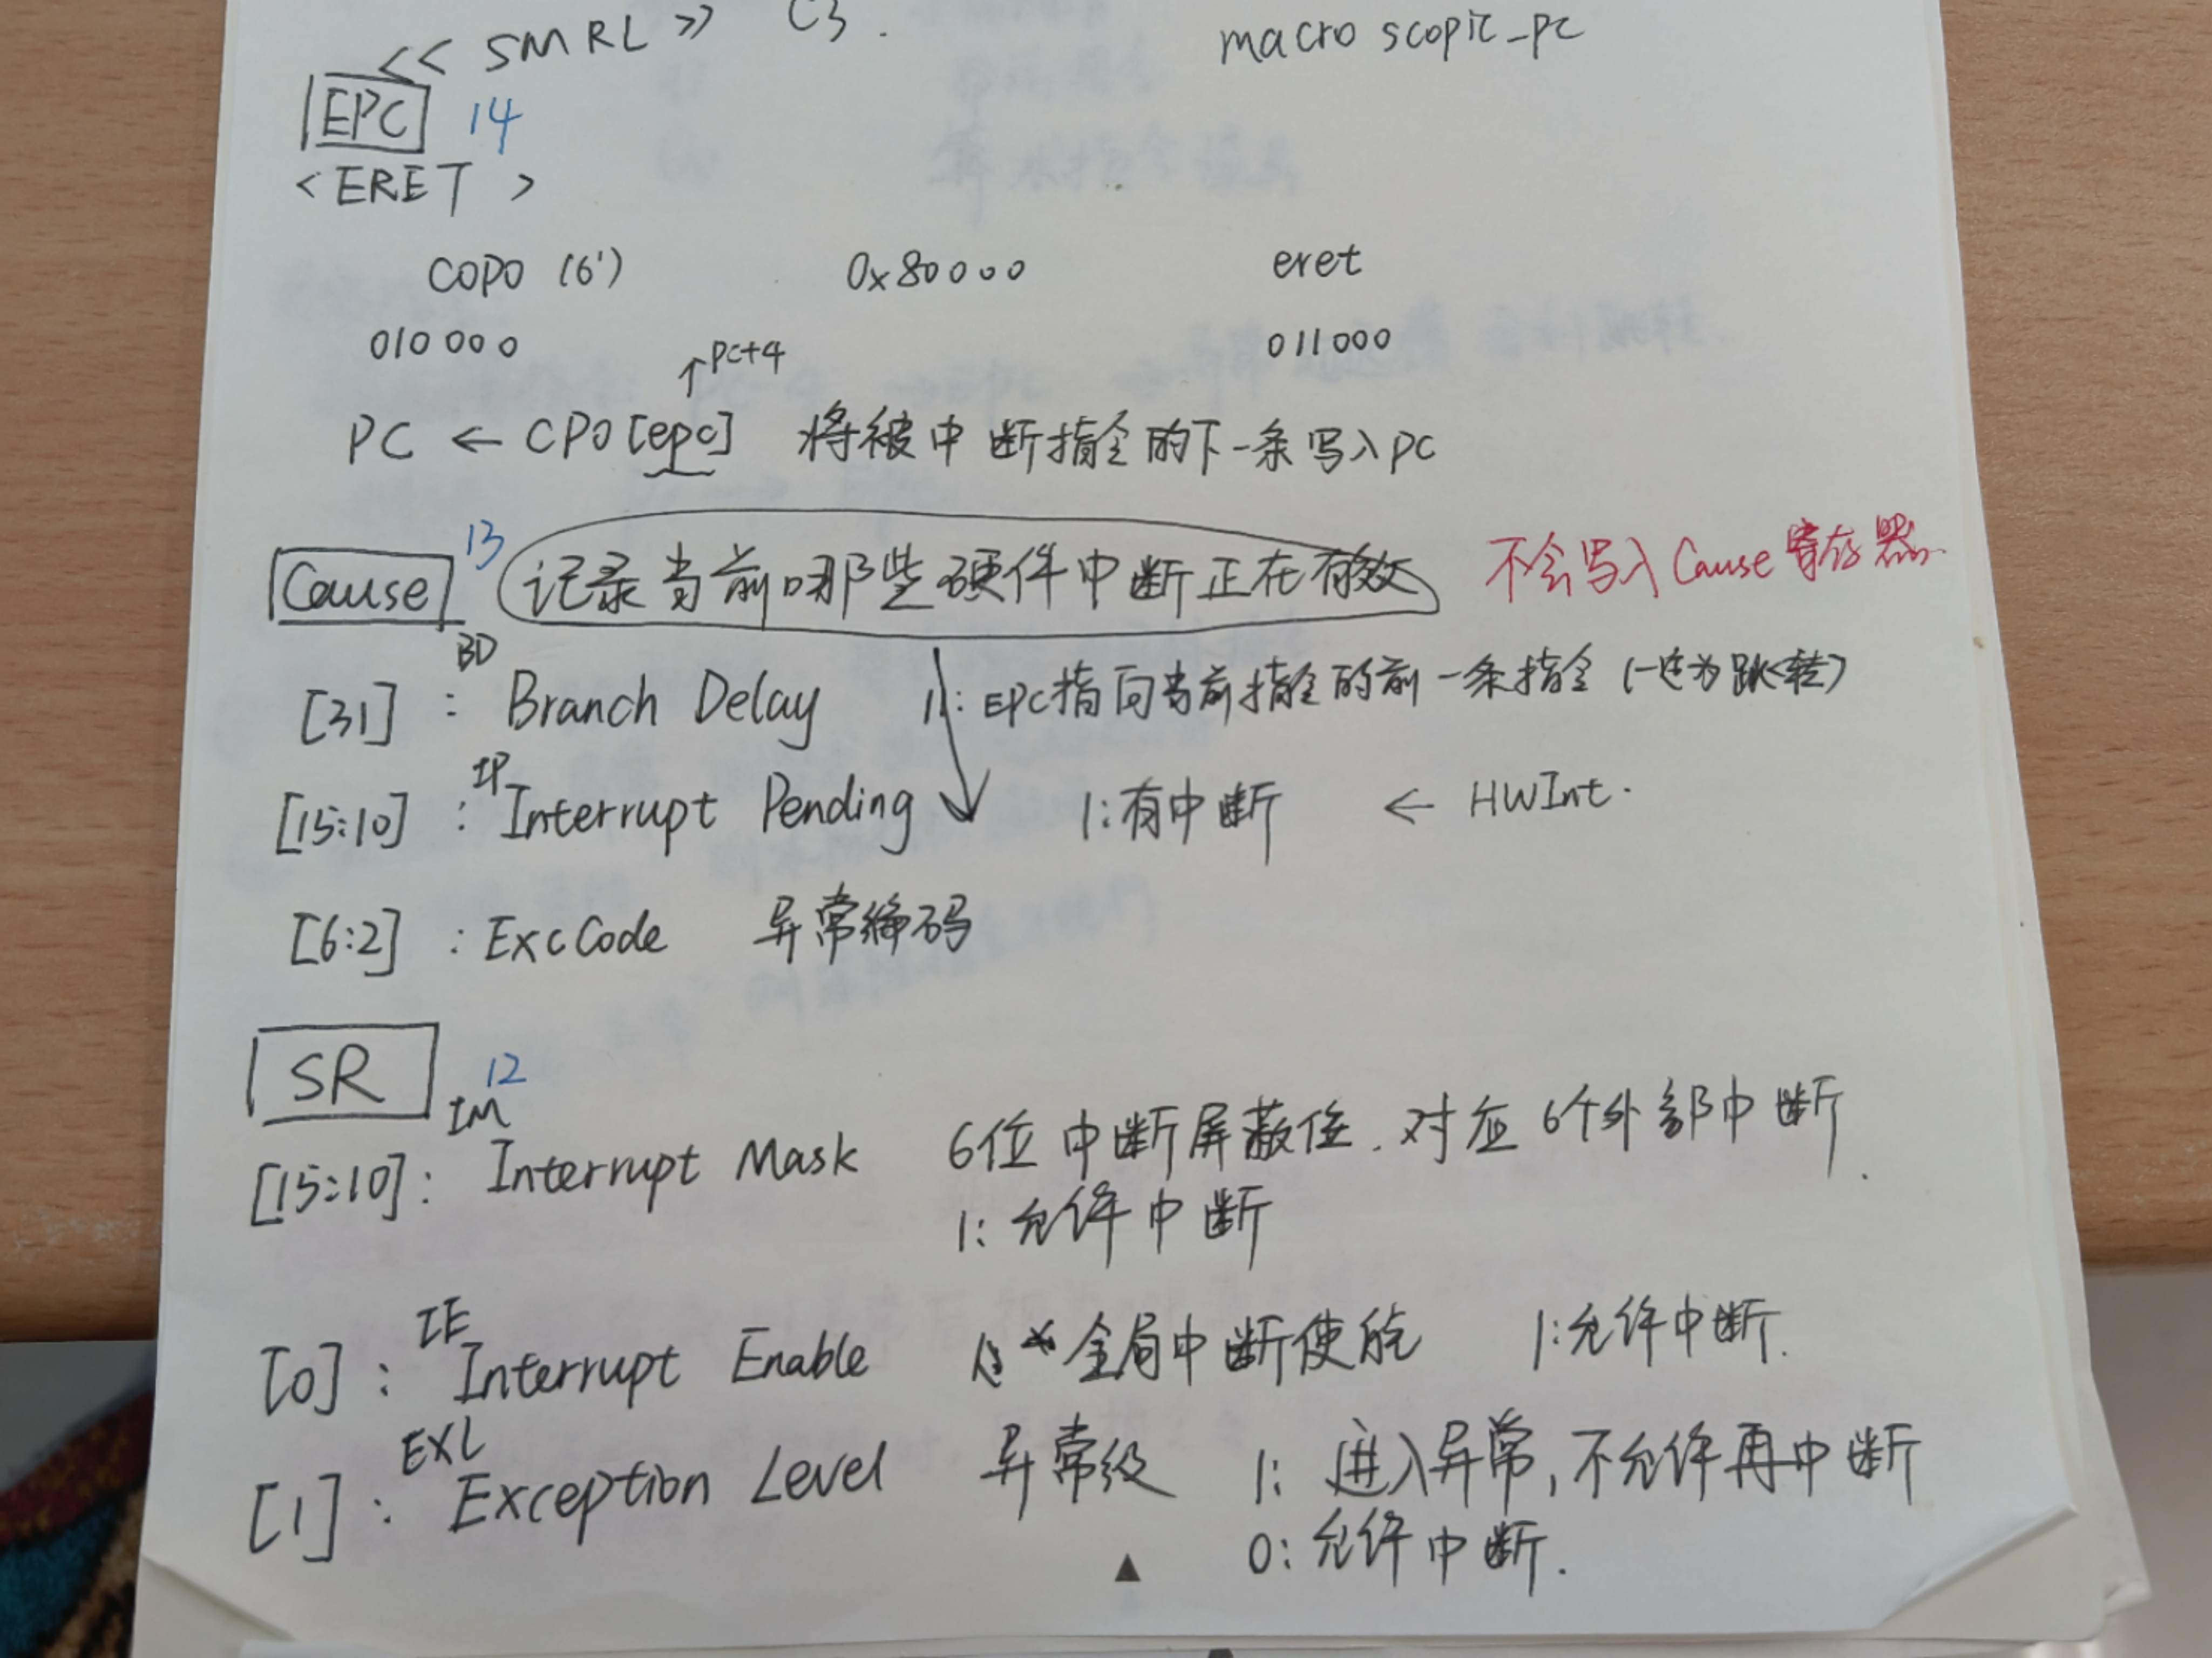 << SMRL >> C3.
macroscopic_pc
EPC 14
<ERET>
COP0 (6') 0x80000 eret
010000 011000
↑pc+4
PC ← CP0[epc] 将被中断指令的下一条写入PC
Cause 13 记录当前哪些硬件中断正在有效 不会写入Cause寄存器
BD
[31] : Branch Delay 1: EPC指向当前指令的前一条指令 (一定为跳转)
IP
[15:10] : Interrupt Pending 1:有中断 ← HWInt.
[6:2] : ExcCode 异常编码
SR 12
IM
[15:10] : Interrupt Mask 6位中断屏蔽位.对应6个外部中断.
1: 允许中断
IE
[0] : Interrupt Enable 全局中断使能 1:允许中断.
EXL
[1] : Exception Level 异常级 1: 进入异常,不允许再中断
0: 允许中断.